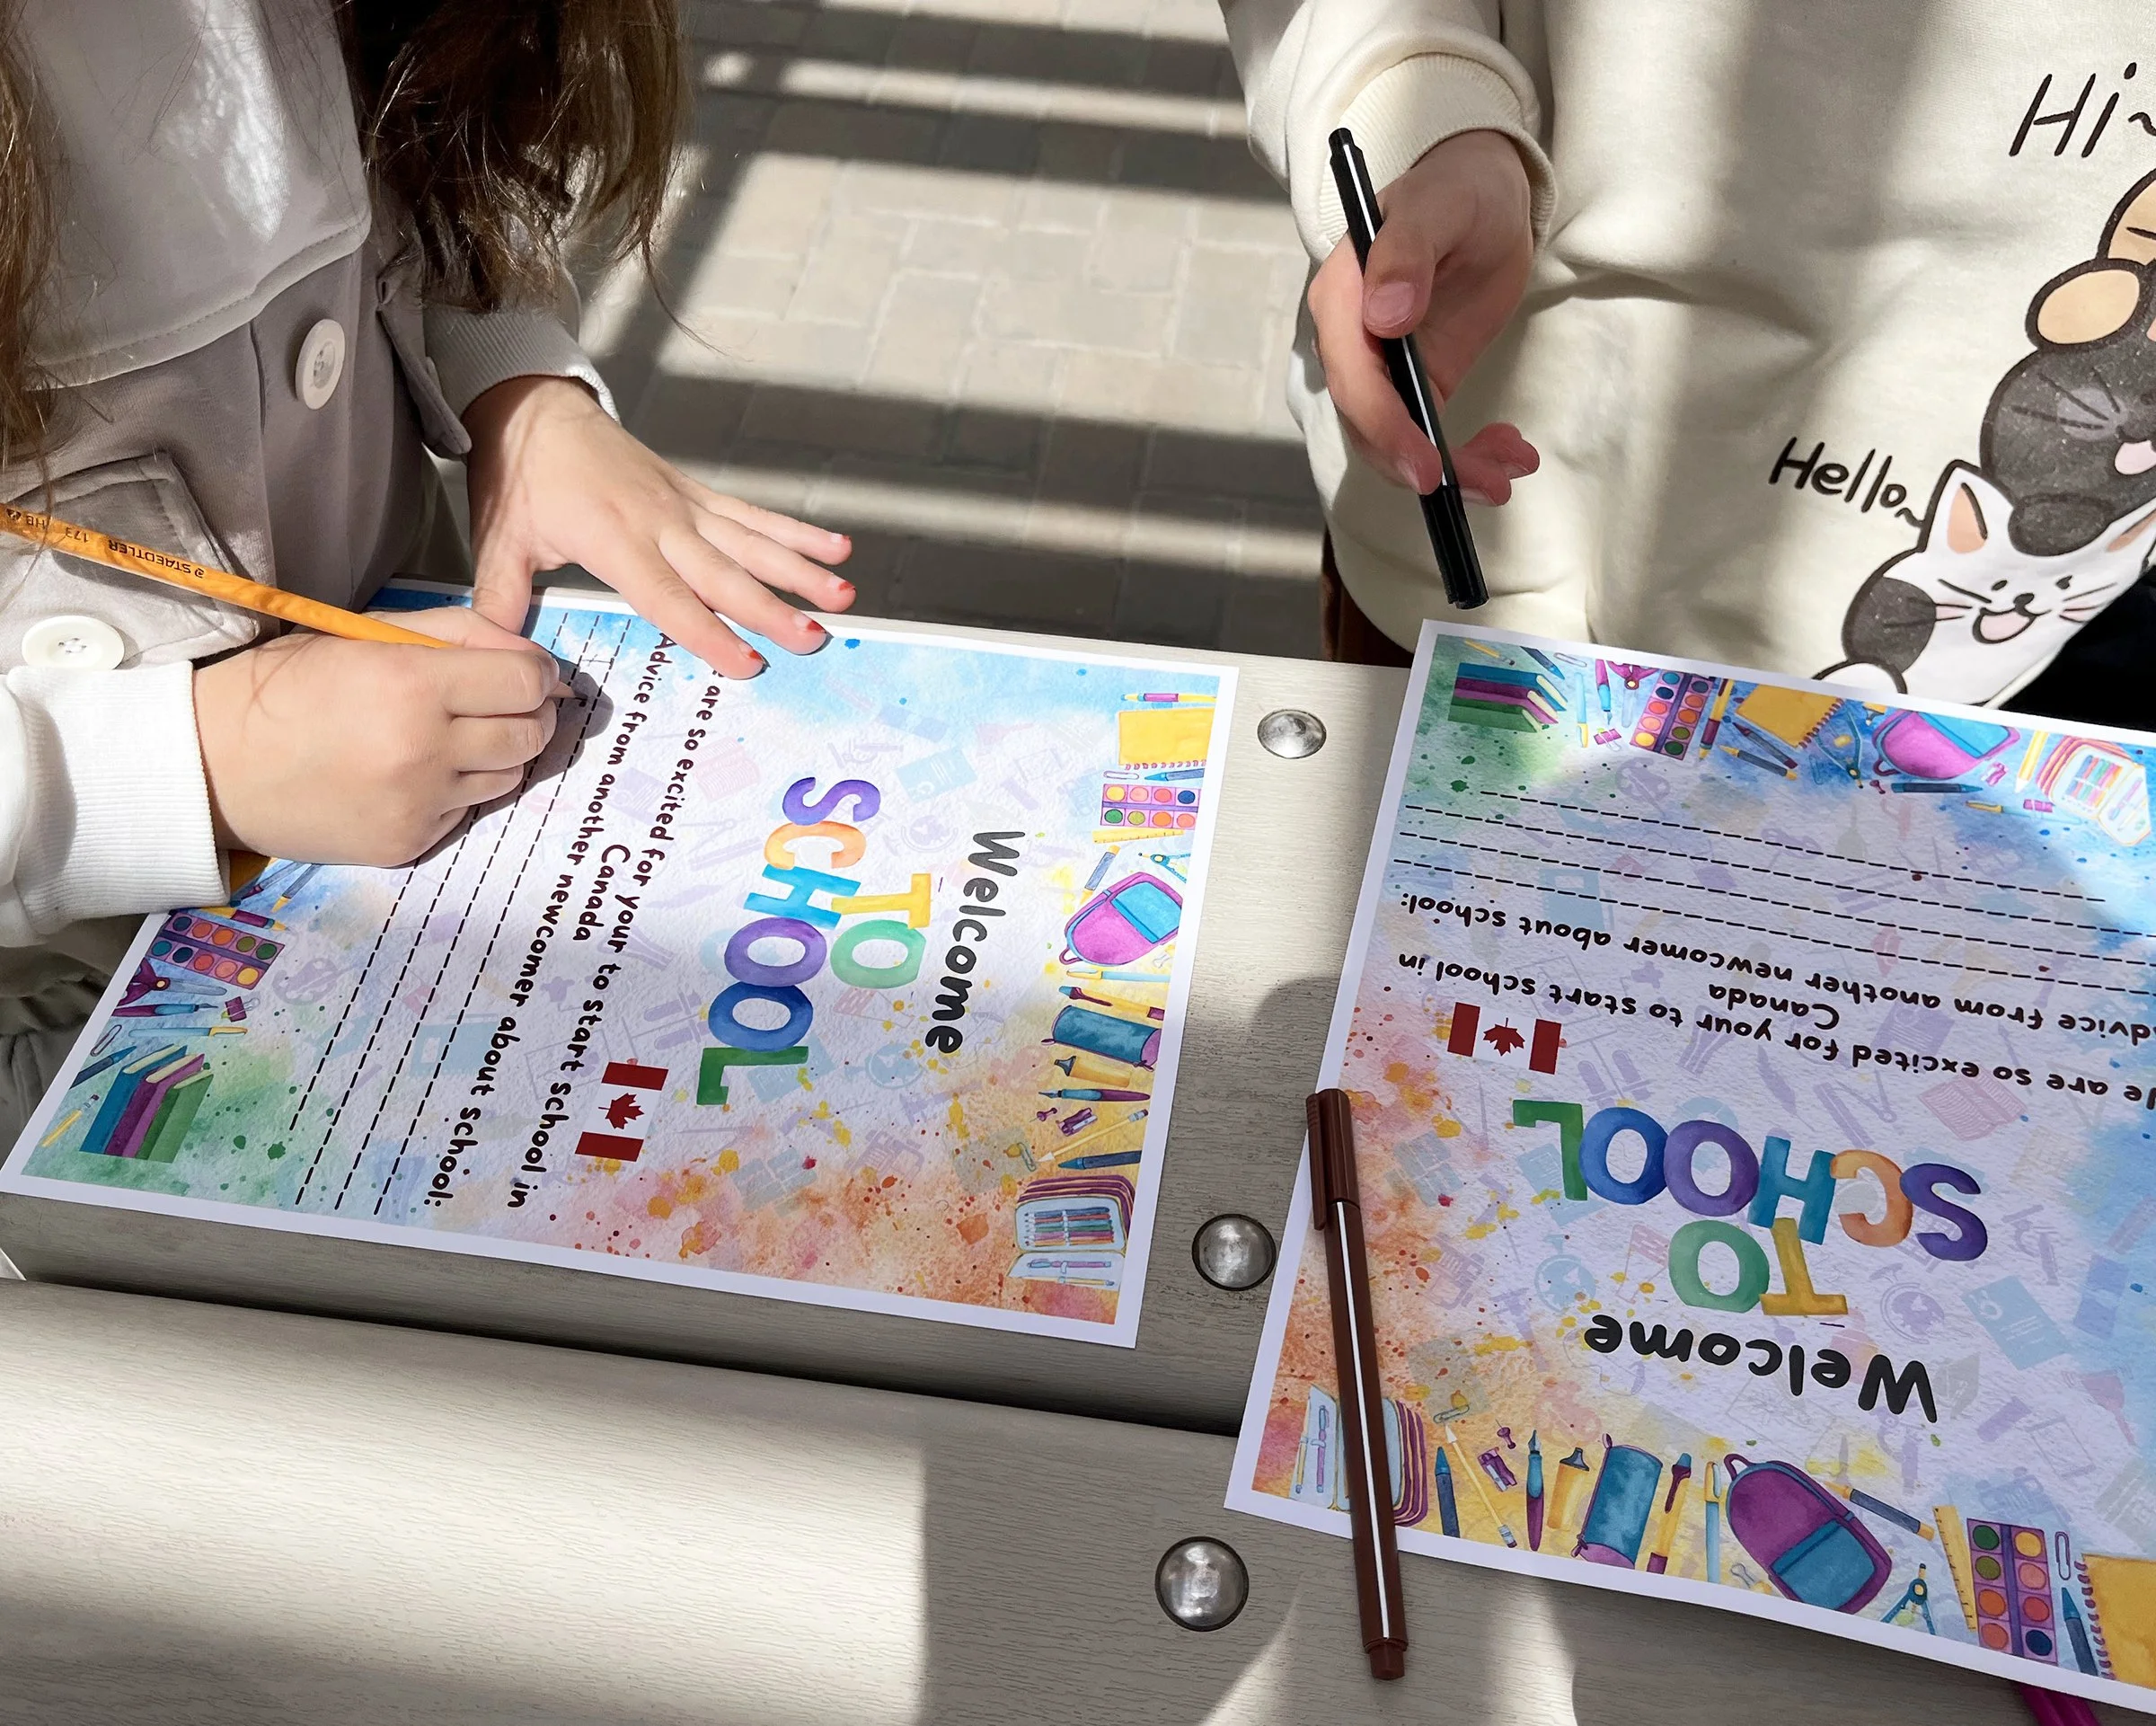 Hi~
Hello~
STAEDTLER 173 HB
Welcome
TO
SCHOOL
are so excited for your to start school in
Canada
Advice from another newcomer about school:
Welcome
TO
SCHOOL
are so excited for your to start school in
Canada
from another newcomer about school: